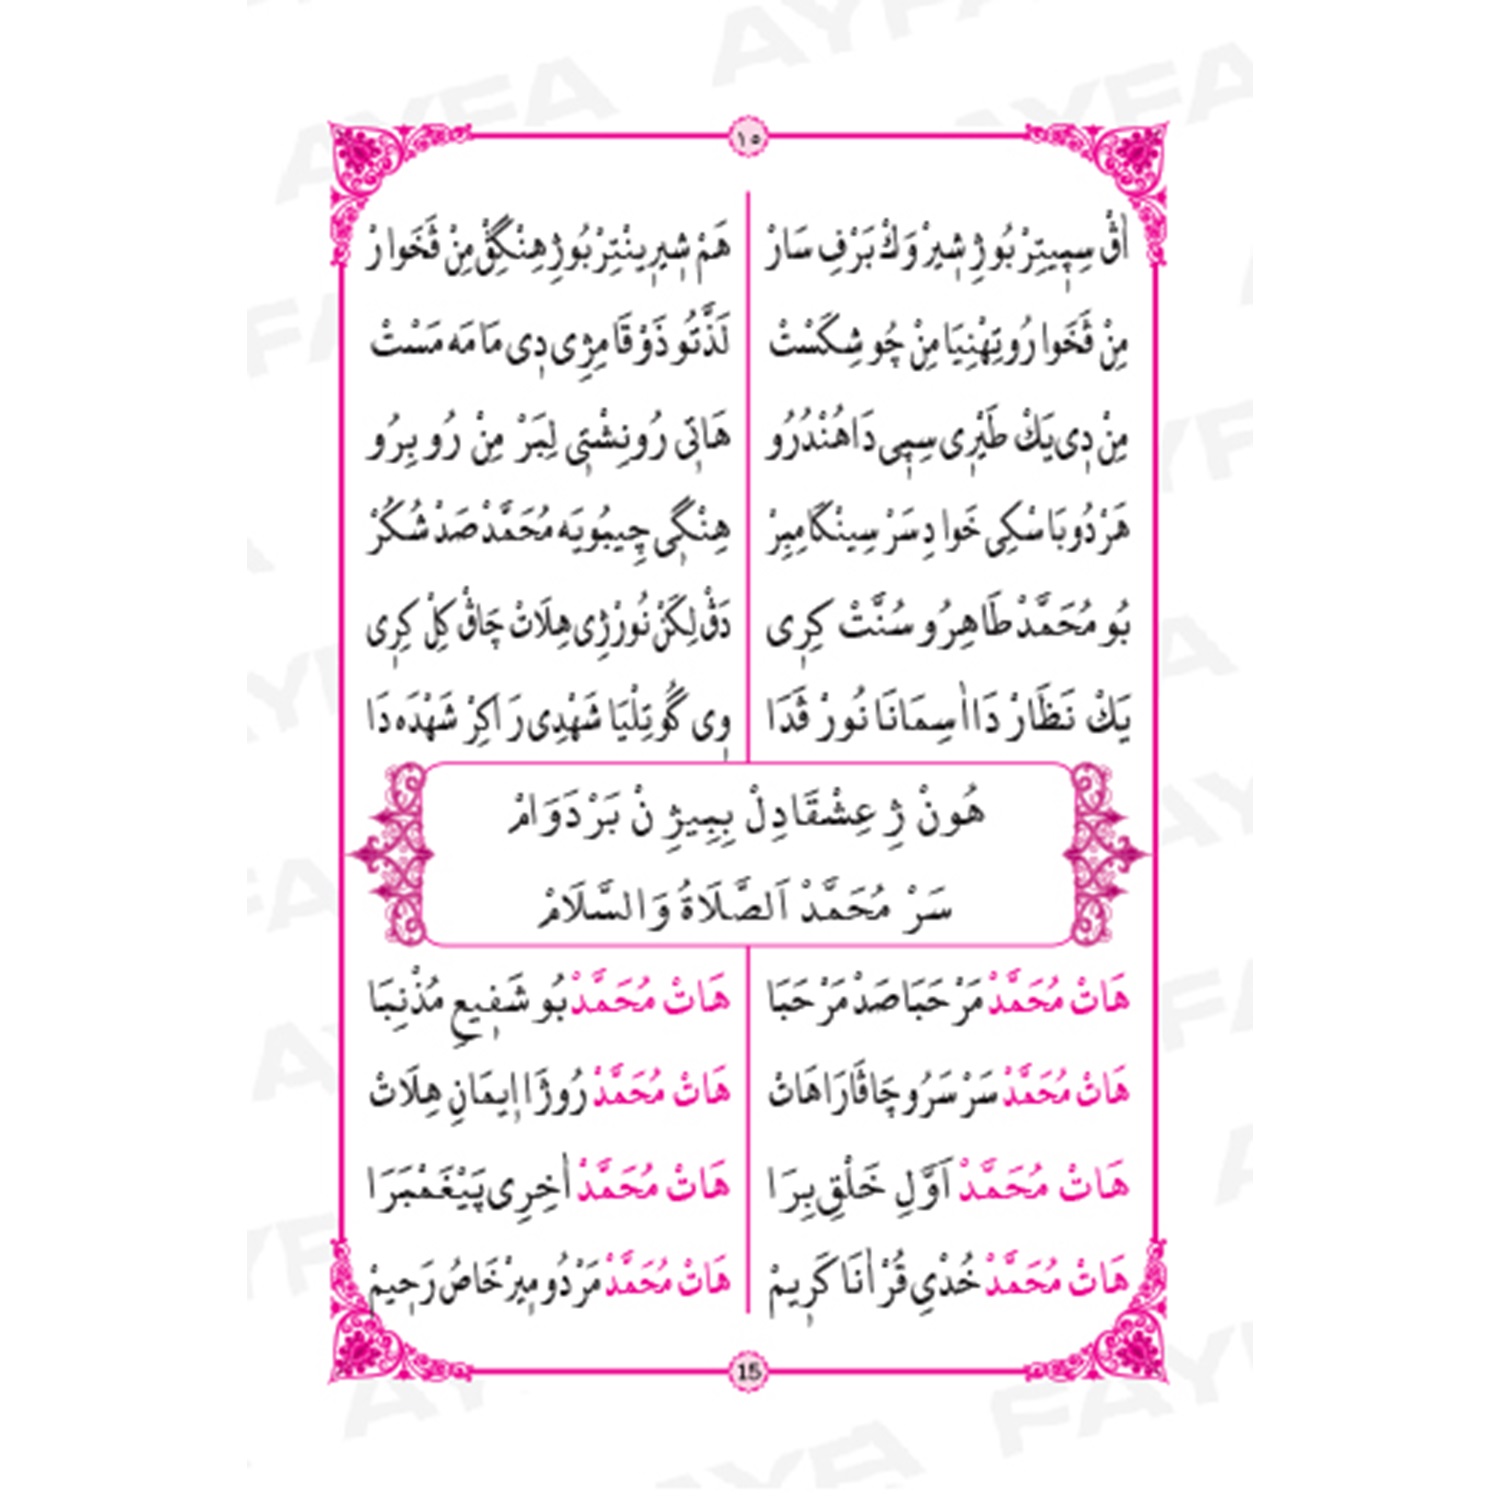 ١٥
اٰڤْ سِپِیتِرْ بُو ژِ شِیرْ وَكْ بَرْفِ سَارْ هَمْ شِیرِینْتِرْ بُو ژِ هِنْگِڤْ مِنْ ڤَخَوارْ
مِنْ ڤَخَوا رُو تِهْنِیَا مِنْ چُو شِكَسْتْ لَذَّتُو ذَوْقَا مِژِی دِی مَامَه مَسْتْ
مِنْ دِی یَكْ طَیْرِی سِپِی دَاهُنْدُرُو هَاتِی رُونِشْتِی لِبَرْ مِنْ رُو بِرُو
هَرْدُو بَاسْكِی خَوا دِسَرْ سِینْگَا مِبِرْ هِنْگِی چِیبُویَه مُحَمَّدْ صَدْ شُكُرْ
بُو مُحَمَّدْ طَاهِرُو سُنَّتْ كِرِی دَڤْ لِكَنْ نُورْ ژِی هِلَاتْ چَاڤْ كِلْ كِرِی
یَكْ نَظَارْ دَا اٰسِمَانَا نُورْ ڤَدَا وِی گُو تِلْیَا شَهْدِی رَاكِرْ شَهْدَه دَا
هُونْ ژِ عِشْقَا دِلْ بِبِیژِ نْ بَرْدَوَامْ
سَرْ مُحَمَّدْ اَلصَّلَاةُ وَالسَّلَامْ
هَاتْ مُحَمَّدْ مَرْحَبَا صَدْ مَرْحَبَا هَاتْ مُحَمَّدْ بُو شَفِیعِ مُذْنِبَا
هَاتْ مُحَمَّدْ سَرْ سَرُو چَاڤَارَا هَاتْ هَاتْ مُحَمَّدْ رُوژَا اِیمَانِ هِلَاتْ
هَاتْ مُحَمَّدْ اَوَّلِ خَلْقِ بِرَا هَاتْ مُحَمَّدْ اٰخِرِی پَیْغَمْبَرَا
هَاتْ مُحَمَّدْ خُدْیِ قُرْاٰنَا كَرِیمْ هَاتْ مُحَمَّدْ مَرْدُو مِیرْ خَاصُ رَحِیمْ
15
AYFA